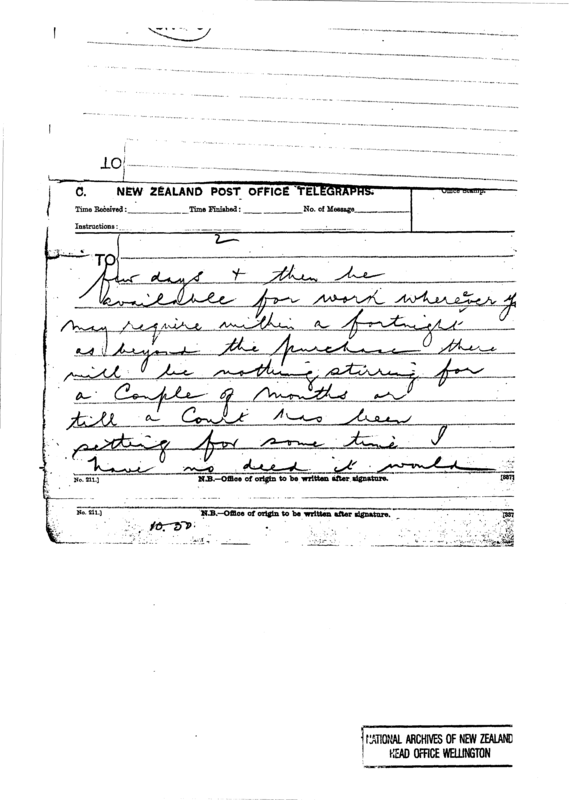 TO
C. NEW ZEALAND POST OFFICE TELEGRAPHS.
Office Stamp.
Time Received: Time Finished: No. of Message
Instructions:
2
TO
few days & then be
available for work wherever
may require within a fortnight
as beyond the purchase there
will be nothing stirring for
a Couple of months or
till a Court has been
sitting for some time I
have no deed it would
No. 211.] N.B.—Office of origin to be written after signature. [337
No. 211.] N.B.—Office of origin to be written after signature. [337
10.
NATIONAL ARCHIVES OF NEW ZEALAND
HEAD OFFICE WELLINGTON